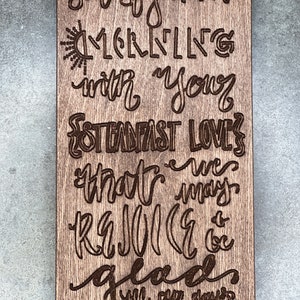 MORNING
with your
{STEADFAST LOVE}
that we may
REJOICE & be
glad
all our days